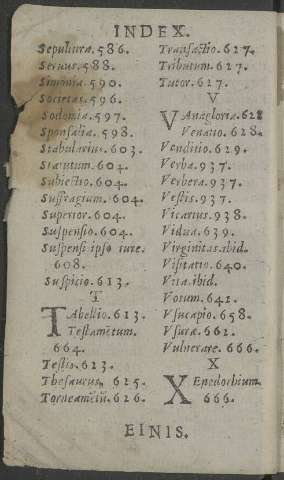 INDEX.
Sepultura. 586.
Seruus. 588.
Simonia. 590.
Societas. 596.
Sodomia. 597.
Sponsalia. 598.
Stabularius. 603.
Statutum. 604.
Subiectio. 604.
Suffragium. 604.
Superior. 604.
Suspensio. 604.
Suspensi ipso iure.
608.
Suspicio. 613.
T
TAbellio. 613.
Testamẽtum.
664.
Testis. 623.
Thesaurus. 625.
Torneamẽtũ. 626.
Transactio. 627.
Tributum. 627.
Tutor. 627.
V
VAnagloria. 628
Venatio. 628.
Venditio. 629.
Verba. 937.
Verbera. 937.
Vestis. 937.
Vicarius. 938.
Vidua. 639.
Virginitas. ibid.
Visitatio. 640.
Vita. ibid.
Votum. 641.
Vsucapio. 658.
Vsuræ. 661.
Vulnerare. 666.
X
XEnodochium.
666.
EINIS.